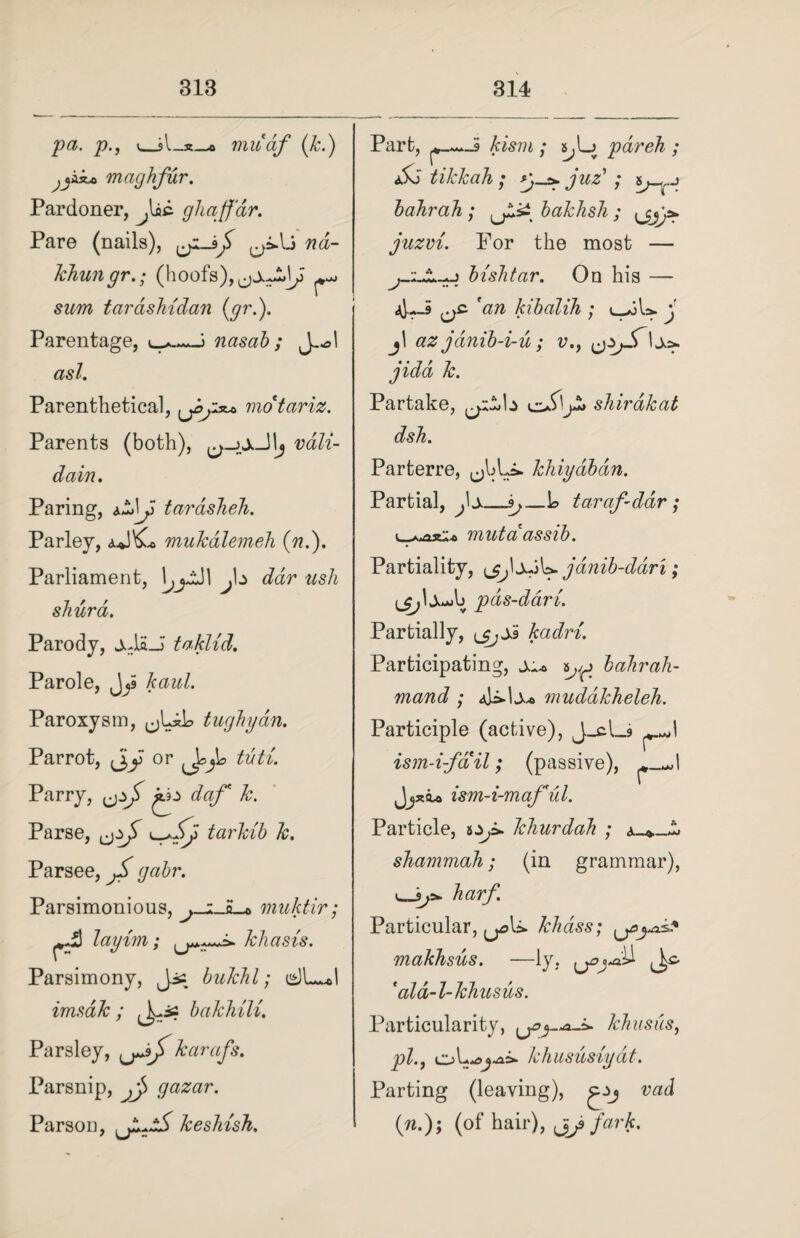 313
pa. p., معاف mu'áf (k.)
مغفور maghfúr.
Pardoner, غفار ghaffár.
Pare (nails), ناخن گرفتن ná-
khun gr.; (hoofs), سم تراشیدن
sum taráshídan (gr.).
Parentage, نسب nasab; اصل
asl.
Parenthetical, معترض mo'tariz.
Parents (both), والدین váli-
dain.
Paring, تراشه tarásheh.
Parley, مکالمه mukálemeh (n.).
Parliament, دار الشورا dár ush
shúrá.
Parody, تقلید taklíd.
Parole, قول kaul.
Paroxysm, طغیان tughyán.
Parrot, توتی or طوطی tútí.
Parry, دفع کردن daf' k.
Parse, ترکیب کردن tarkíb k.
Parsee, گبر gabr.
Parsimonious, مقتر muktir;
لئیم layím; خسیس khasís.
Parsimony, بخل bukhl; امساك
imsák; بخیلی bakhílí.
Parsley, کرفس karafs.
Parsnip, گزر gazar.
Parson, کشیش keshísh.
314
Part, قسم kism; پاره páreh;
تکه tikkah; جزء juz'; بهره
bahrah; بخش bakhsh; جزوی
juzví. For the most —
بیشتر bíshtar. On his —
عن قبله 'an kibalih; از جانب
او az jánib-i-ú; v., جدا کردن
jidá k.
Partake, شراکت داشتن shirákat
dsh.
Parterre, خیابان khiyábán.
Partial, طرفدار taraf-dár;
متعصب muta'assib.
Partiality, جانبداری jánib-dárí;
پاسداری pás-dárí.
Partially, قدری kadrí.
Participating, بهره مند bahrah-
mand; مداخله muddákheleh.
Participle (active), اسم فاعل
ism-i-fá'il; (passive), اسم
مفعول ism-i-maf'úl.
Particle, خرده khurdah; شمه
shammah; (in grammar),
حرف harf.
Particular, خاص kháss; مخصوص
makhsús. —ly, علی الخصوص
'alá-l-khusús.
Particularity, خصوص khusús,
pl., خصوصیات khusúsiyát.
Parting (leaving), ودع vad
(n.); (of hair), فرق fark.